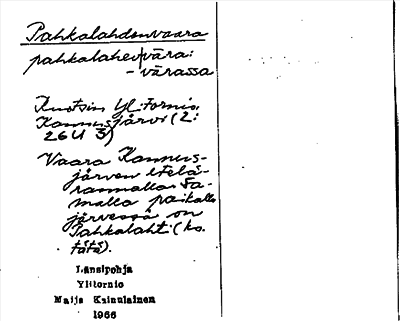 Pahkalahdenvaara
pahkalahen|vära:
-värassa
Ruotsin Yl:tornio.
Kannusjärvi (2:
26U 3)
Vaara Kannus-
järven etelä-
rannalla. Sa-
malla paikalla
järvessä on
Pahkalahti (ks.
tätä).
Länsipohja
Ylitornio
Maija Kainulainen
1966